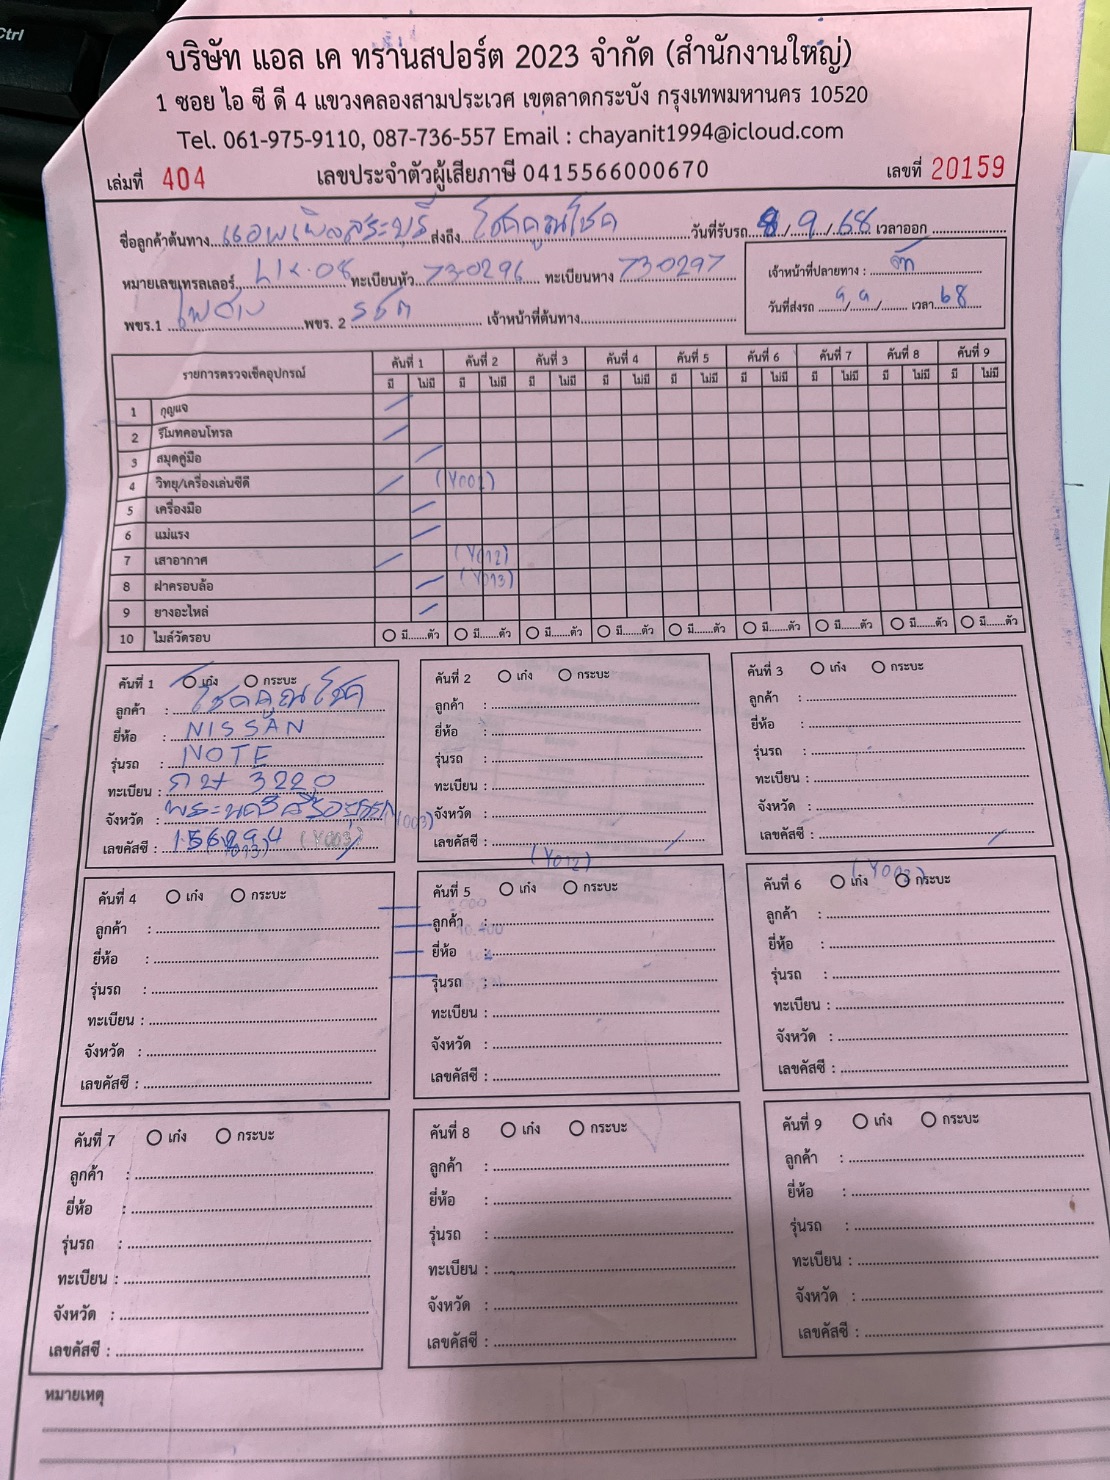 Ctrl
บริษัท แอล เค ทรานสปอร์ต 2023 จำกัด (สำนักงานใหญ่)
1 ซอย ไอ ซี ดี 4 แขวงคลองสามประเวศ เขตลาดกระบัง กรุงเทพมหานคร 10520
Tel. 061-975-9110, 087-736-557 Email : chayanit1994@icloud.com
เล่มที่ 404 เลขประจำตัวผู้เสียภาษี 0415566000670 เลขที่ 20159
ชื่อลูกค้าต้นทาง ส่งถึง โชคคูณโชค วันที่รับรถ 8/9/68 เวลาออก
หมายเลขเทรลเลอร์ LK-08 ทะเบียนหัว 73-0296 ทะเบียนหาง 73-0297 เจ้าหน้าที่ปลายทาง :
พขร.1 พขร. 2 เจ้าหน้าที่ต้นทาง วันที่ส่งรถ 9/9/ เวลา 68
รายการตรวจเช็คอุปกรณ์ คันที่ 1 คันที่ 2 คันที่ 3 คันที่ 4 คันที่ 5 คันที่ 6 คันที่ 7 คันที่ 8 คันที่ 9
มี ไม่มี มี ไม่มี มี ไม่มี มี ไม่มี มี ไม่มี มี ไม่มี มี ไม่มี มี ไม่มี มี ไม่มี
1 กุญแจ
2 รีโมทคอนโทรล
3 สมุดคู่มือ
4 วิทยุ/เครื่องเล่นซีดี (Y002)
5 เครื่องมือ
6 แม่แรง
7 เสาอากาศ (Y012)
8 ฝาครอบล้อ (Y013)
9 ยางอะไหล่
10 ไมล์วัดรอบ มี......ตัว มี......ตัว มี......ตัว มี......ตัว มี......ตัว มี......ตัว มี......ตัว มี......ตัว มี......ตัว
คันที่ 1 เก๋ง กระบะ
ลูกค้า : โชคคูณโชค
ยี่ห้อ : NISSAN
รุ่นรถ : NOTE
ทะเบียน : 3220
จังหวัด : พระนครศรีอยุธยา (Y003)
เลขคัสซี : (Y013) (Y003)
คันที่ 2 เก๋ง กระบะ
ลูกค้า :
ยี่ห้อ :
รุ่นรถ :
ทะเบียน :
จังหวัด :
เลขคัสซี :
(Y012)
คันที่ 3 เก๋ง กระบะ
ลูกค้า :
ยี่ห้อ :
รุ่นรถ :
ทะเบียน :
จังหวัด :
เลขคัสซี :
คันที่ 4 เก๋ง กระบะ
ลูกค้า :
ยี่ห้อ :
รุ่นรถ :
ทะเบียน :
จังหวัด :
เลขคัสซี :
คันที่ 5 เก๋ง กระบะ
ลูกค้า :
ยี่ห้อ :
รุ่นรถ :
ทะเบียน :
จังหวัด :
เลขคัสซี :
คันที่ 6 เก๋ง กระบะ
ลูกค้า :
ยี่ห้อ :
รุ่นรถ :
ทะเบียน :
จังหวัด :
เลขคัสซี :
คันที่ 7 เก๋ง กระบะ
ลูกค้า :
ยี่ห้อ :
รุ่นรถ :
ทะเบียน :
จังหวัด :
เลขคัสซี :
คันที่ 8 เก๋ง กระบะ
ลูกค้า :
ยี่ห้อ :
รุ่นรถ :
ทะเบียน :
จังหวัด :
เลขคัสซี :
คันที่ 9 เก๋ง กระบะ
ลูกค้า :
ยี่ห้อ :
รุ่นรถ :
ทะเบียน :
จังหวัด :
เลขคัสซี :
หมายเหตุ